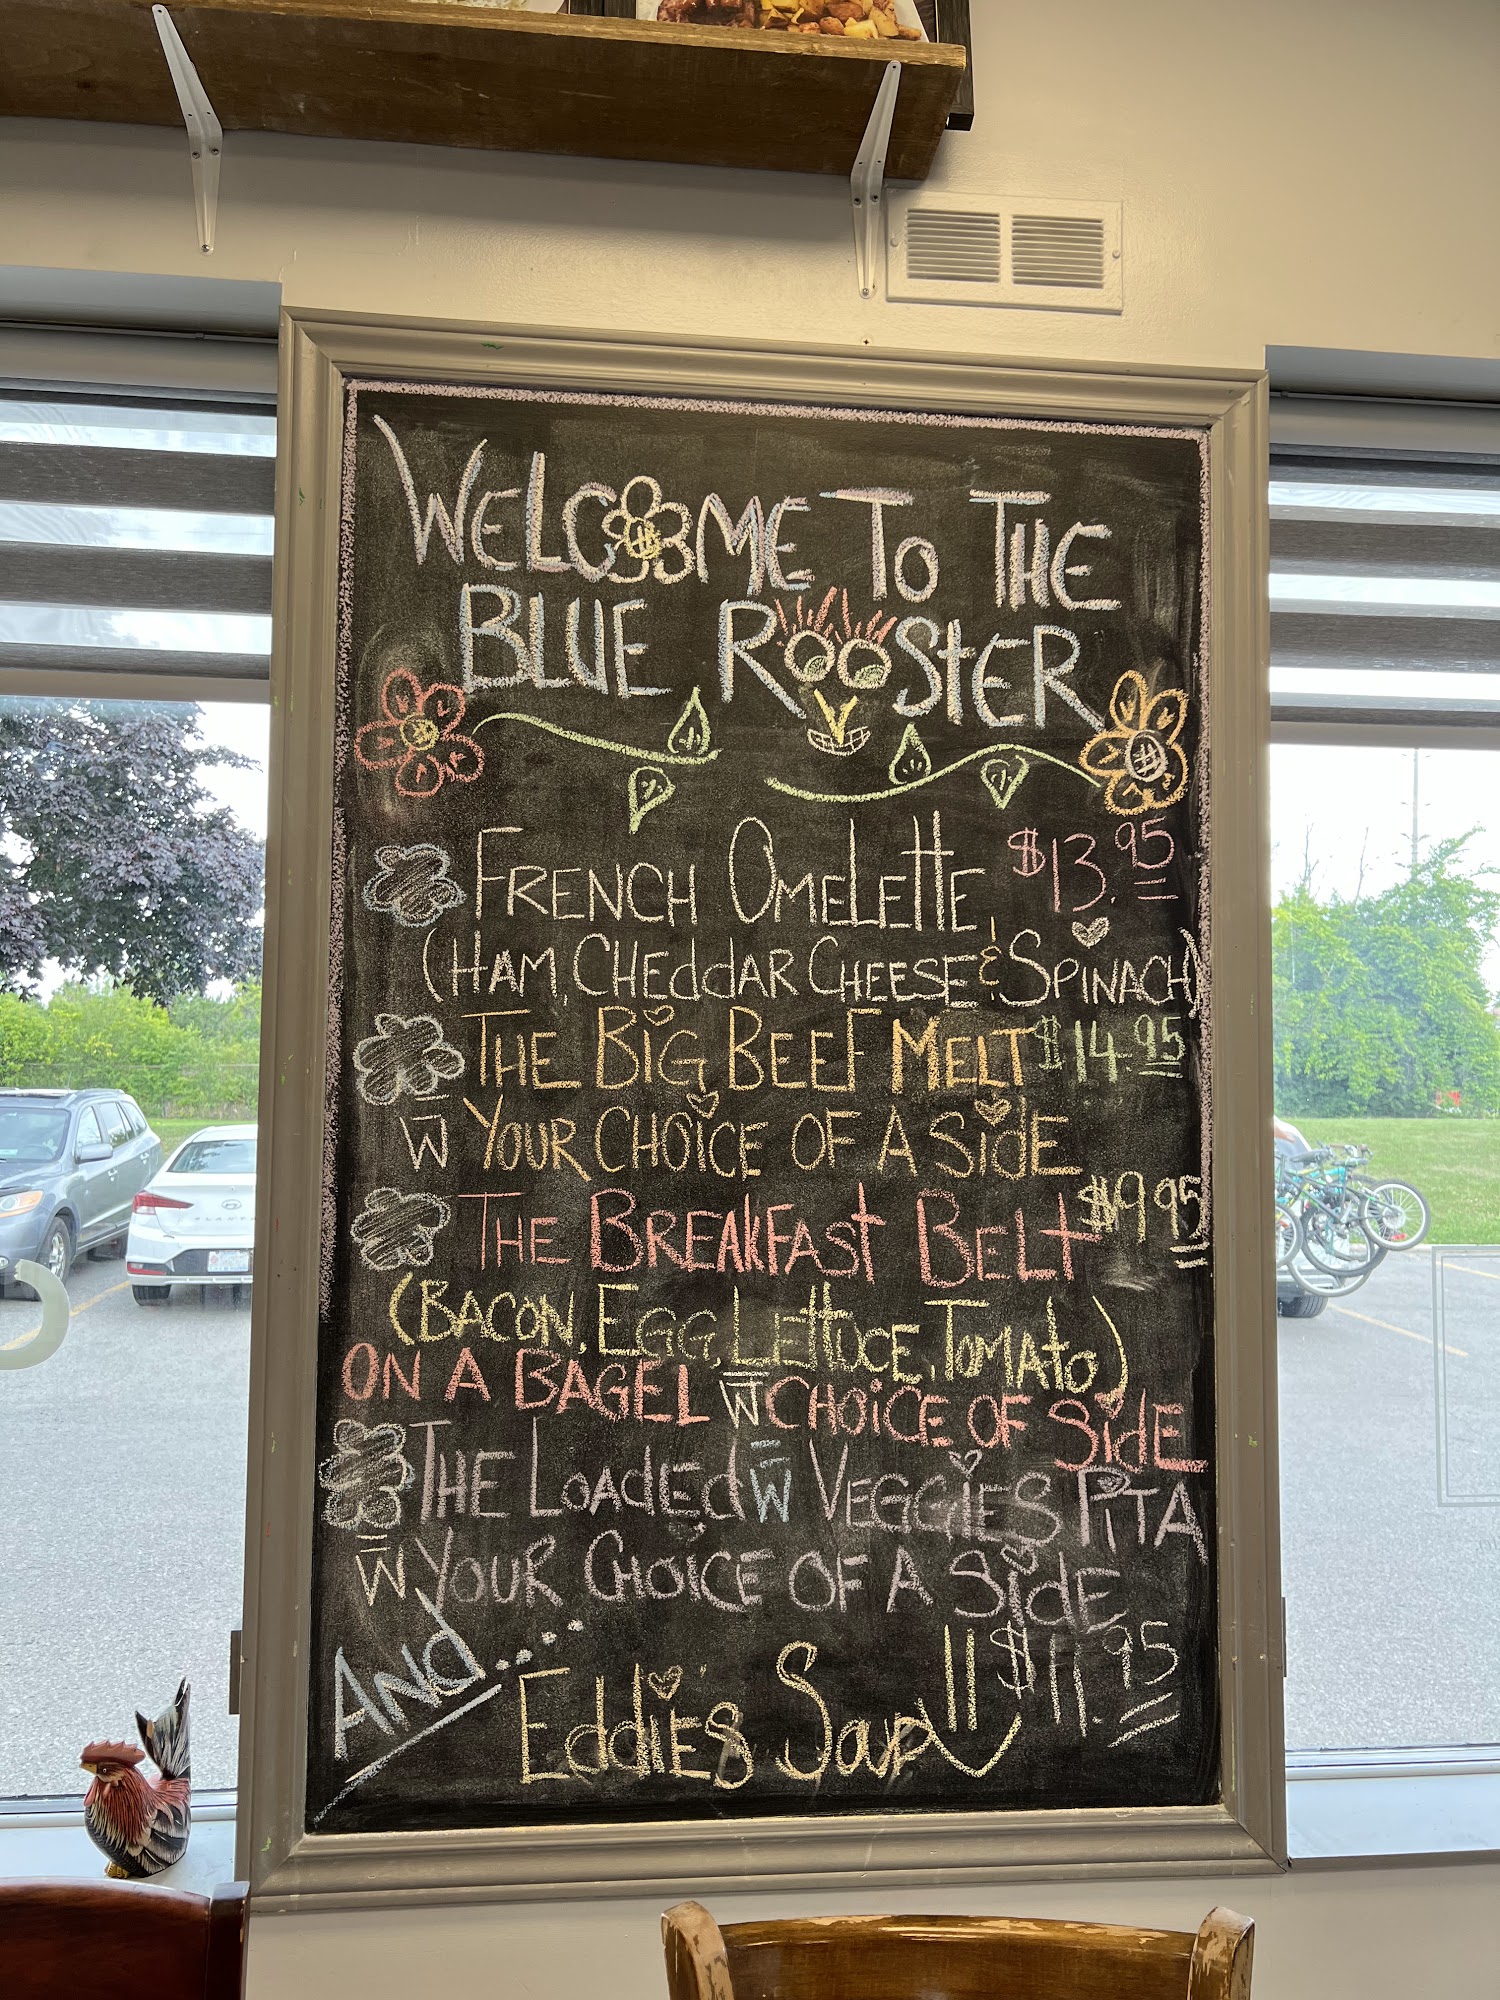 WELCOME TO THE
BLUE ROOSTER
FRENCH OMELETTE $13.95
(HAM, CHEddAR CHEESE & SPINACH)
THE BIG BEEF MELT $14.95
W YOUR CHOICE OF A SidE
THE BREAKFAST BELT $9.95
(BACON, EGG, LETTUCE, TOMATO)
ON A BAGEL W CHOiCE OF SidE
THE LOAdEd W VEGGIES PITA
W YOUR CHOICE OF A SidE
AND.... $11.95
EddiE'S Soup!!
ELANTRA